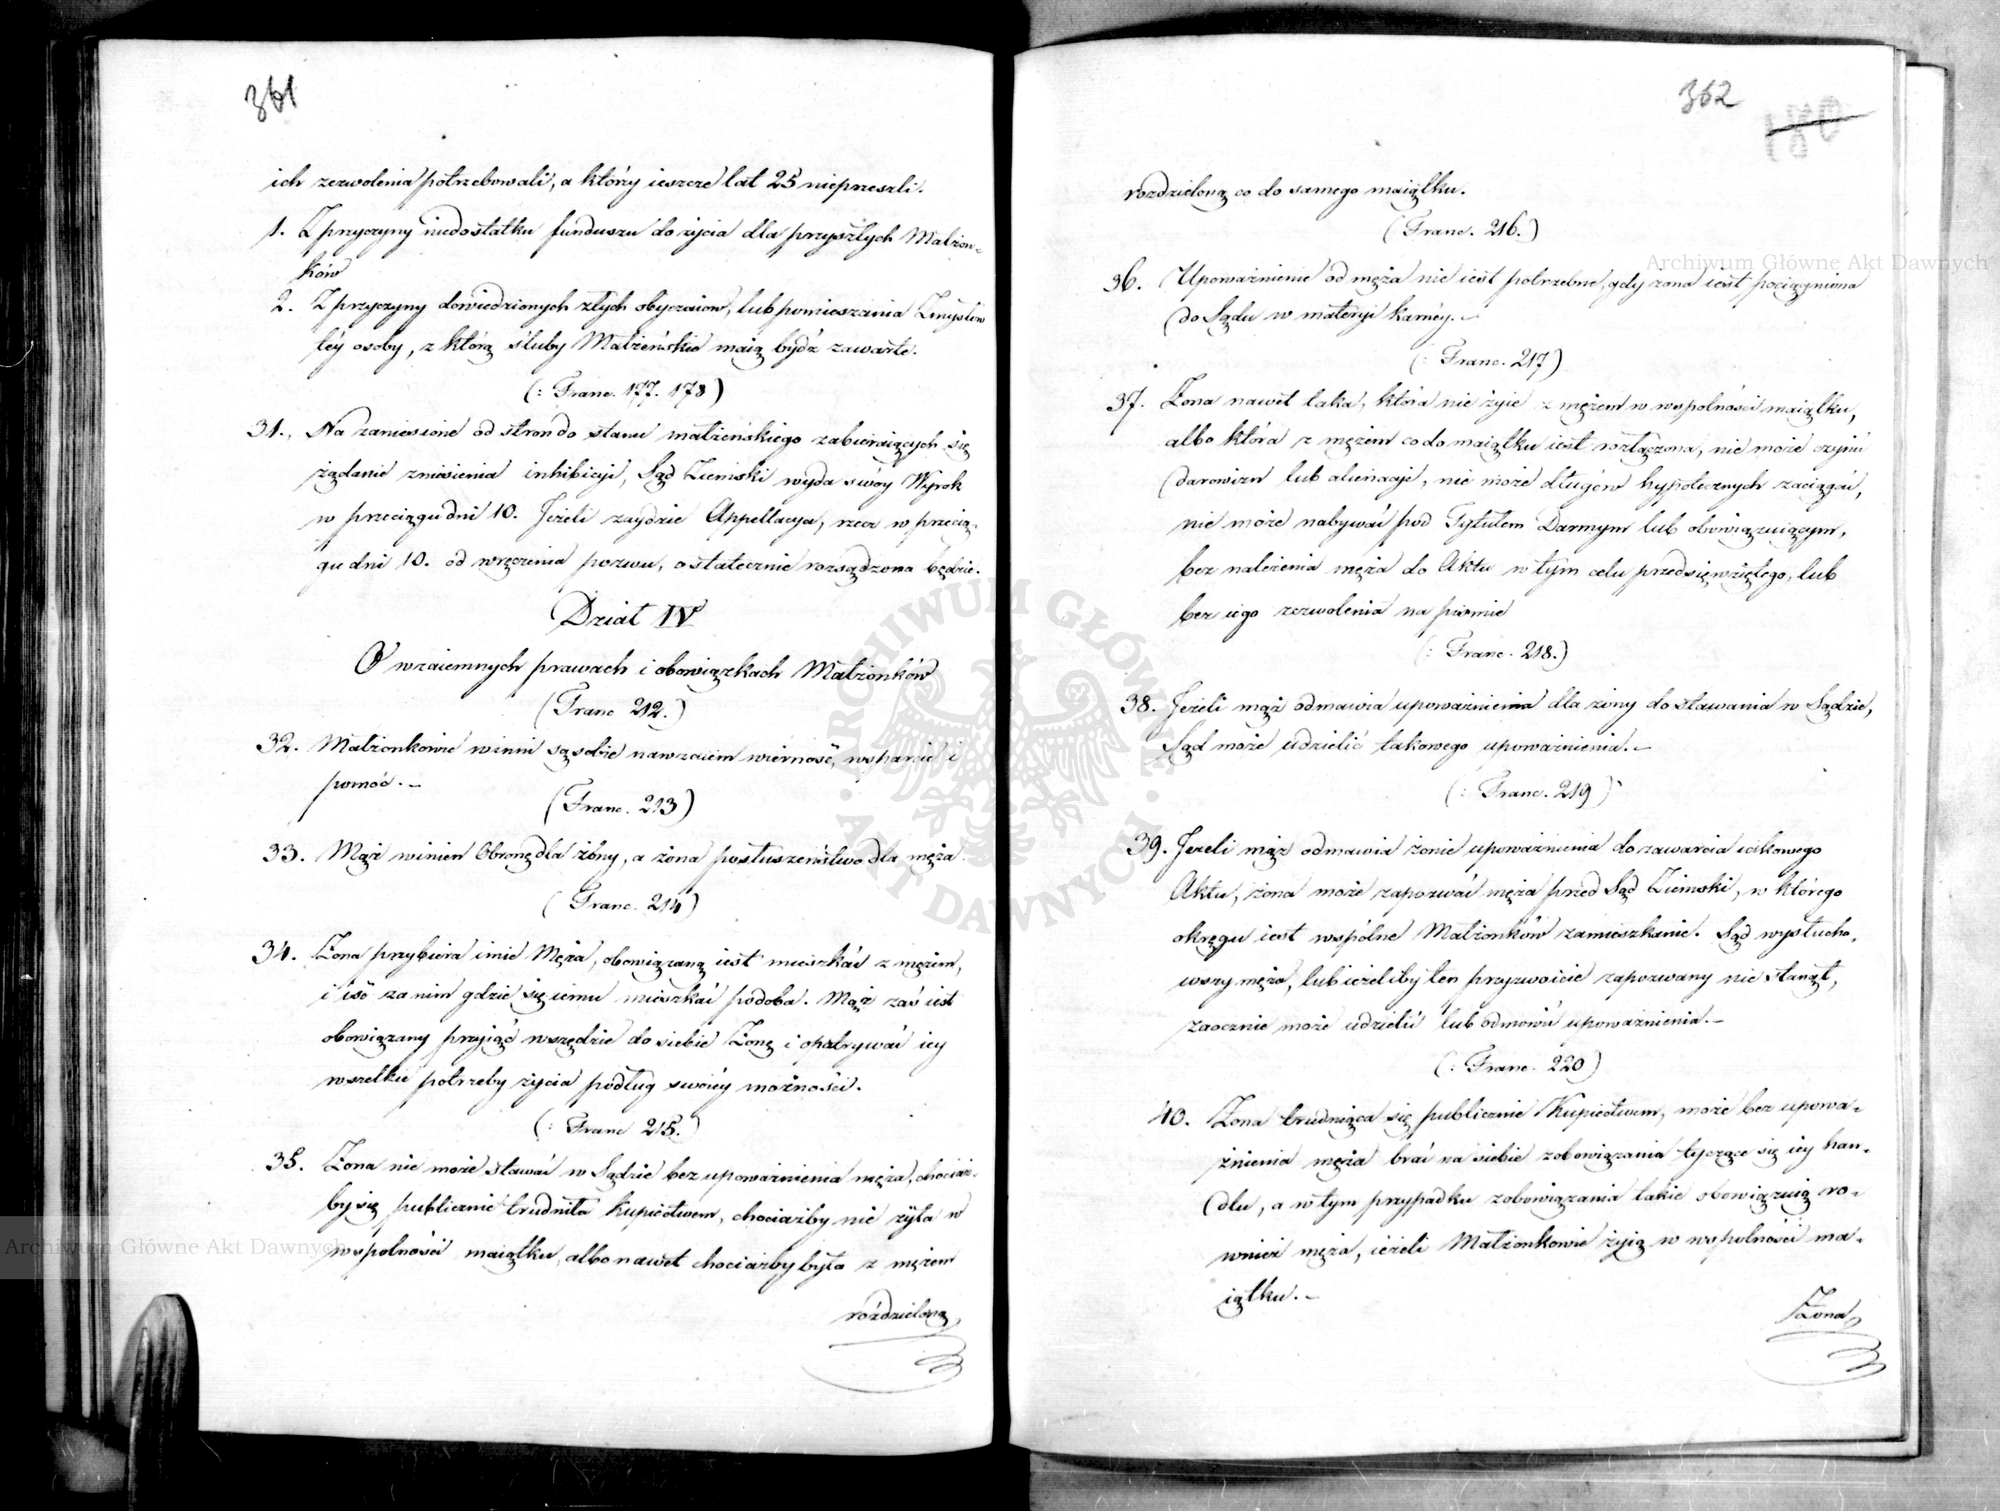 361
ich zezwolenia potrzebowali, a którzy ieszcze lat 25 nieprzeszli.
1. Z przyczyny niedostatku funduszu do życia dla przyszłych Małżon-
ków
2. Z przyczyny dowiedzionych złych obyczaiów, lub pomieszania Zmysłów
téy osoby, z którą śluby Małżeńskie maią bydź zawarte.
(: Franc. 177. 178)
31., Na zaniesione od stron do stanu małżeńskiego zabieraiących się
żądanie zniesienia inhibicyi, Sąd Ziemski wyda swóy Wyrok
w przeciągu dni 10. Jeżeli zaydzie Appellacya, rzecz w przecią-
gu dni 10. od wręczenia pozwu, ostatecznie rozsądzona będzie.
Dział IV
O wzaiemnych prawach i obowiązkach Małżonków
(Franc 212.)
32. Małżonkowie winni są sobie nawzaiem wierność, wsparcie i
pomoc. –
(Franc. 213)
33. Mąż winien Obronę dla żony, a żona posłuszeństwo dla męża
(Franc. 214)
34. Żona przybiera imie Męża, obowiązaną iest mieszkać z mężem,
i iść za nim gdzie się iemu mieszkać podoba. Mąż zaś iest
obowiązany przyiąć wszędzie do siebie Żonę i opatrywać iey
wszelkie potrzeby życia podług swoiéy możności.
(: Franc 215.)
35. Żona nie może stawać w Sądzie bez upoważnienia męża, chociaż-
by się publicznie trudniła kupiectwem, chociażby nie żyła w
wspolności maiątku, albo nawet chociażby była z mężem
rozdzieloną
362
180
rozdzieloną co do samego maiątku.
(Franc. 216.)
36. Upoważnienie od męża nie iest potrzebne, gdy żona iest pociągniona
do Sądu w materyi karnéy. –
(: Franc. 217)
37. Żona nawet taka, która nie żyie z mężem w wspolności maiątku,
albo która z mężem co do maiątku iest rozłączona, nie może czynić
darowizn lub alienacyi, nie może długów hypotecznych zaciągać,
nie może nabywać pod Tytułem Darmym lub obowiązuiącym,
bez należenia męża do Aktu w tym celu przedsięwziętego, lub
bez iego zezwolenia na pismie
(: Franc. 218.)
38. Jeżeli mąż odmawia upoważnienia dla żony do stawania w Sądzie,
Sąd może udzielić takowego upoważnienia. –
(: Franc. 219)
39. Jeżeli mąż odmawia żonie upoważnienia do zawarcia iakowego
Aktu, żona może zapozwać męża przed Sąd Ziemski, w którego
okręgu iest wspólne Małżonków zamieszkanie. Sąd wysłucha-
wszy męża, lub ieżeliby ten przyzwoicie zapozwany nie stanął,
zaocznie może udzielić lub odmówić upoważnienia. –
(: Franc. 220)
40. Żona trudniąca się publicznie Kupiectwem, może bez upowa-
żnienia męża brać na siebie zobowiązania tyczące się iey han-
dlu, a w tym przypadku zobowiązania takie obowiązuią ró-
wnież męża, ieżeli Małżonkowie żyią w wspolności ma-
iątku. –
Żona
Archiwum Główne Akt Dawnych
Archiwum Główne Akt Dawnych
ARCHIWUM GŁÓWNE
AKT DAWNYCH